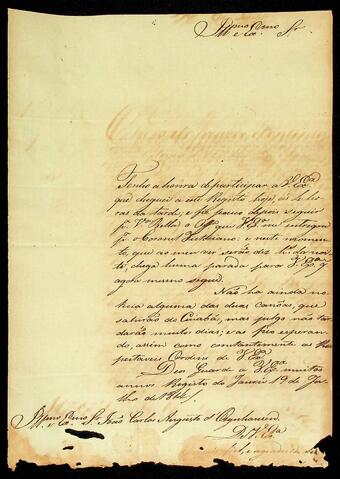 Illmo e Exmo Sr.
Tenho a honra de participar a V. Exa
que cheguei a este Registo hoje, ás
ras da tarde, e já pouco depois seguir
pa Va Bella o que V. Exa me entregou
pa o Coronel e neste momen-
to, que ao meu ver serão des hs da noi-
te, chega huma parada para V. Exa, q
agora mesmo segue.
Não ha ainda no-
ticia alguma das duas canôas, que
sahirão do Cuiabá, mas julgo não tar-
darão muitos dias; e as fico esperan-
do, assim como constantemente as Res-
peitaveis Ordens de V. Exa
Deos Guarde a V. Exa muitos
annos Registo do Jaurú 19 de Ju-
lho de 181
Illmo e Exmo Sr. João Carlos Augusto d'Oeynhausen
De V. Exa